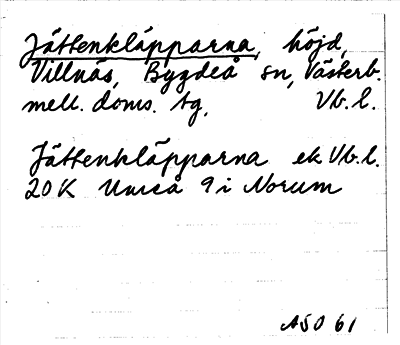 Jättenkläpparna, höjd,
Villnäs, Bygdeå sn, Västerb.
mell. doms. tg, Vb. l.
Jättenkläpparna ek Vb. l.
20 K Umeå 9 i Norum
ASO 61